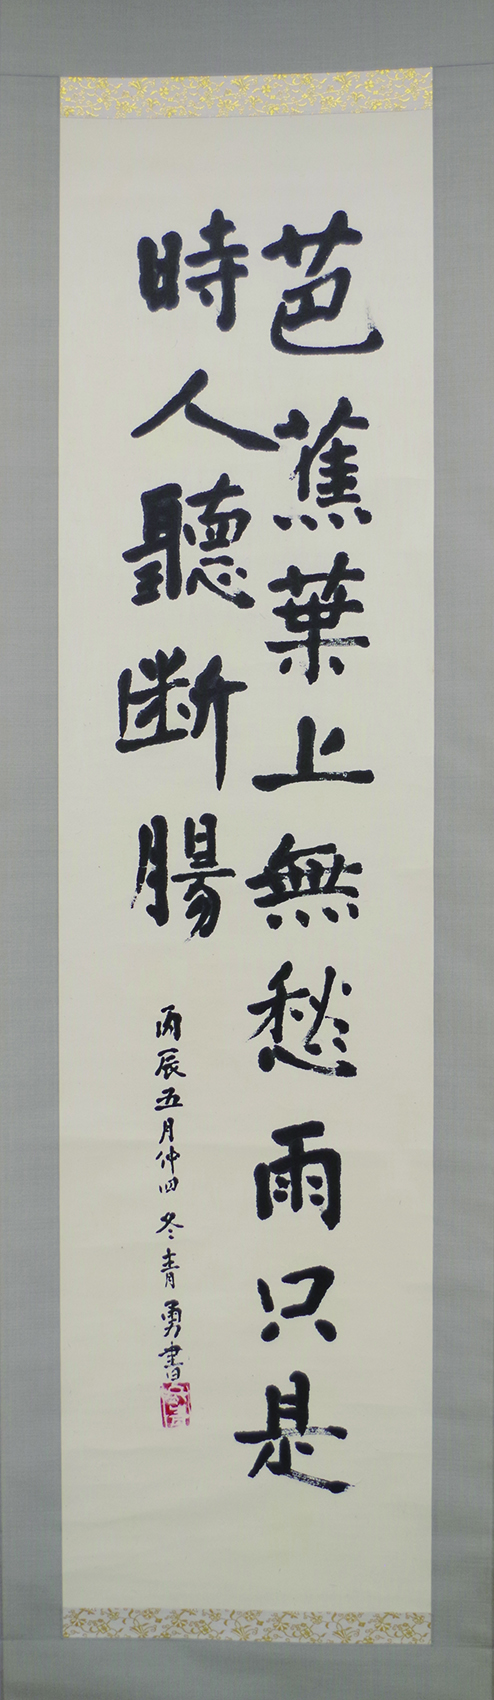 芭蕉葉上無愁雨只是
時人聽断腸
丙辰五月仲四 冬青勇書